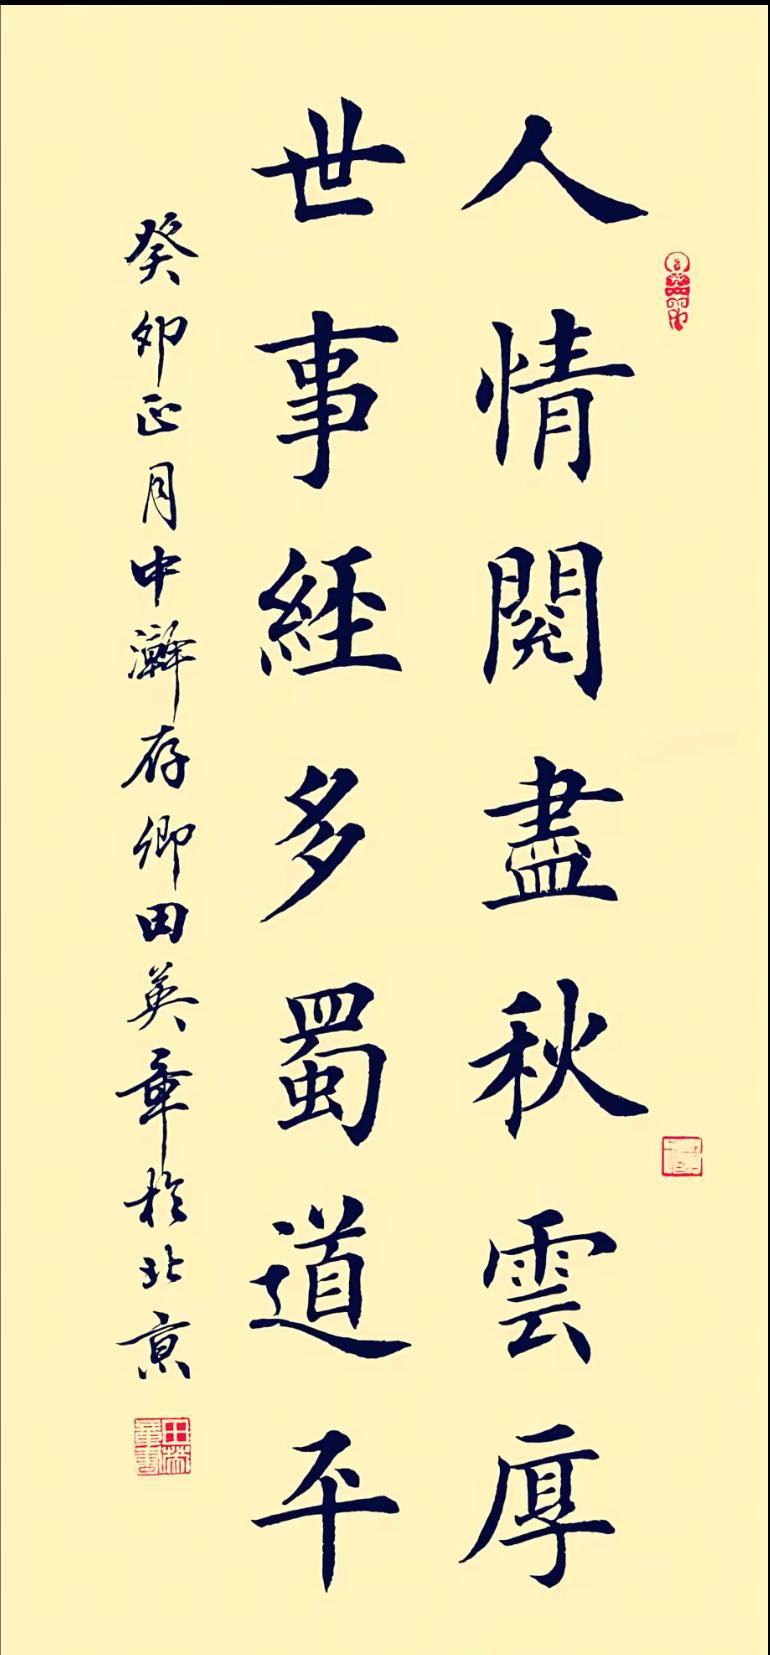 人情閱盡秋雲厚
世事經多蜀道平
癸卯正月中澣存卿田英章於北京
田英章書